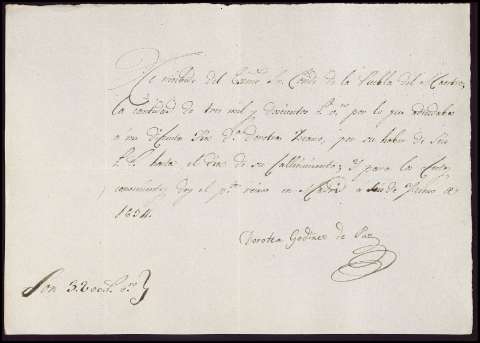 He recibido del Exmo. Sr. Conde de la Puebla del Maestre
la cantidad de tres mil y doscientos rs. vn. por lo que adeudaba
a mi difunta Dª Dorotea por su haber de
hasta el dia de su fallecimiento; y para los
doy el preste. recivo en Madrid a de de
1834.
Dorotea Godinez de Paz
Son 3.200 rs. vn.